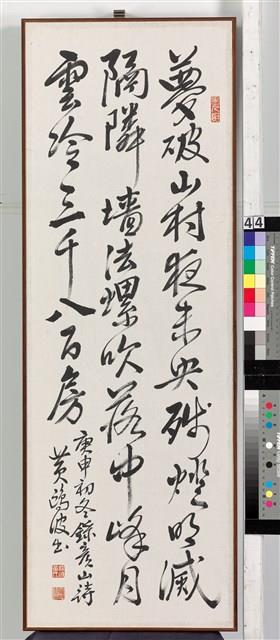 夢破山村夜未央殘燈明滅
隔隣墻法螺吹落中峰月
雲冷三千八百房
庚申初冬錄彥山詩
黃鷗波書
44